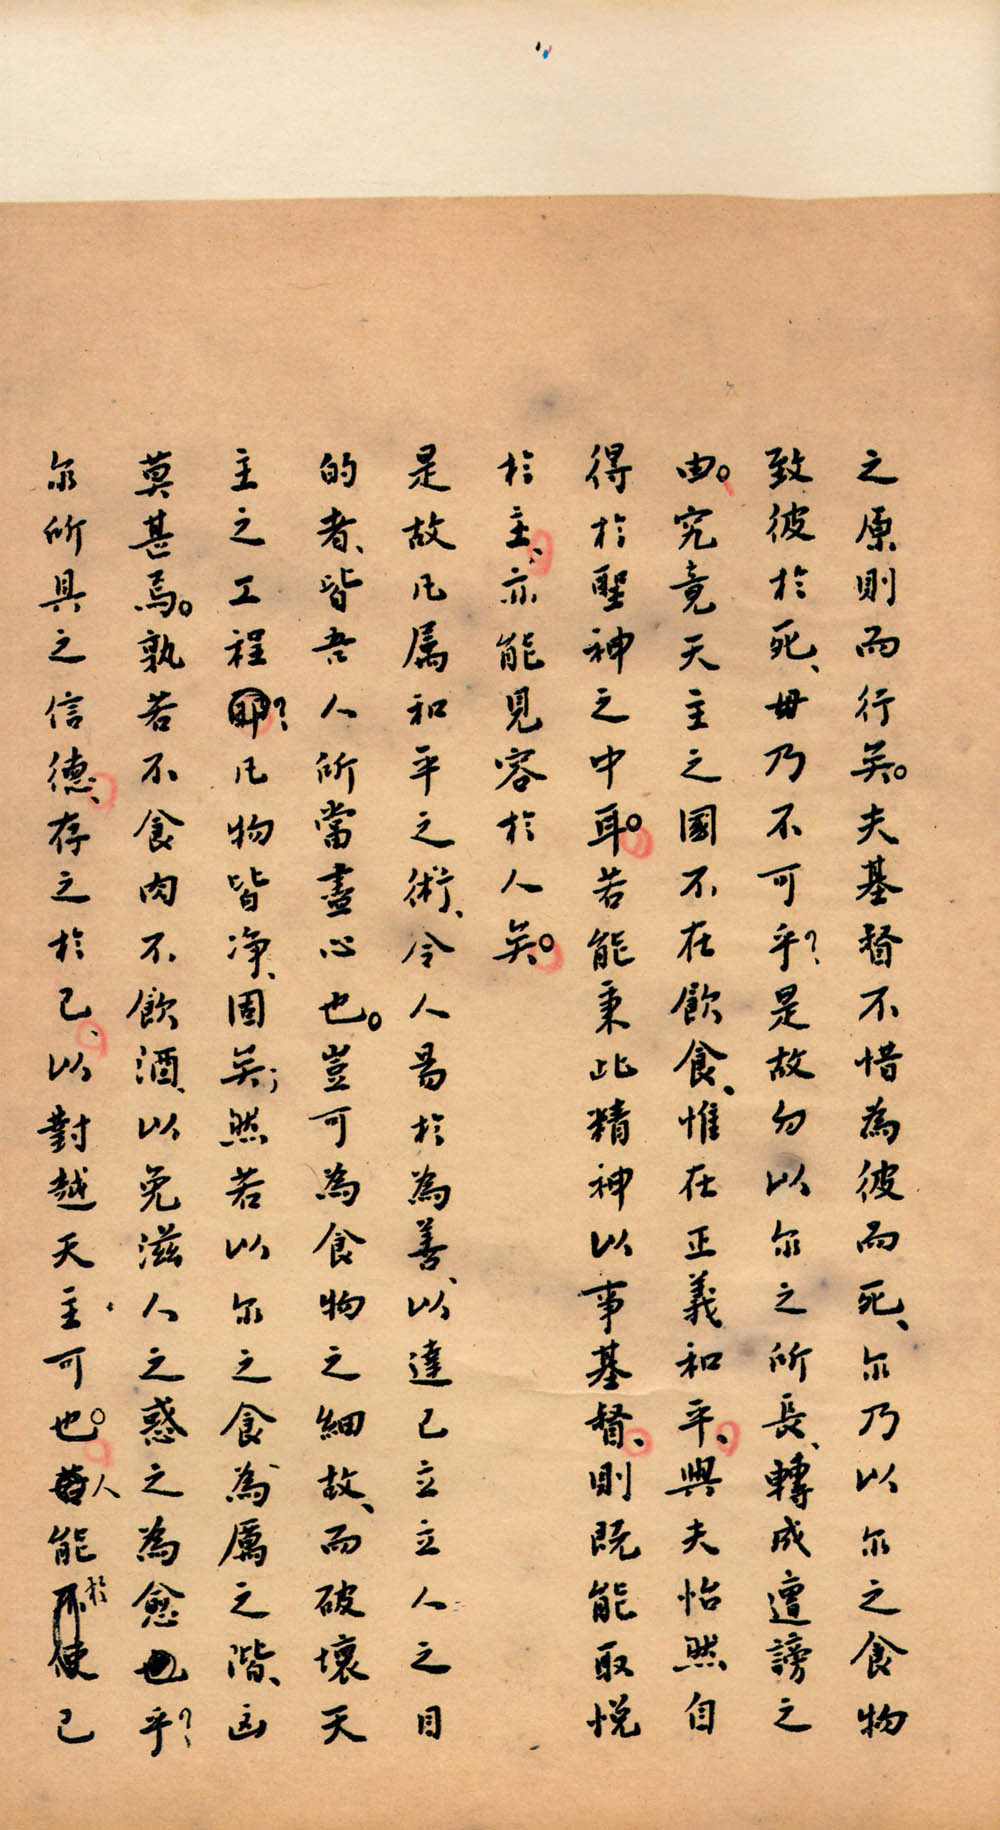 之原則而行矣。夫基督不惜為彼而死、尔乃以尔之食物
致彼於死、毋乃不可乎？是故勿以尔之所長、轉成遭謗之
由。究竟天主之國不在飲食、惟在正義和平、與夫怡然自
得於聖神之中耳。若能秉此精神以事基督、則既能取悅
於主、亦能見容於人矣。
是故凡屬和平之術、令人易於為善、以達己立立人之目
的者、皆吾人所當盡心也。豈可為食物之細故、而破壞天
主之工程？凡物皆净、固矣；然若以尔之食為厲之階、凶
莫甚焉。孰若不食肉不飲酒、以免滋人之惑之為愈乎？
尔所具之信德、存之於己、以對越天主可也。人能於己